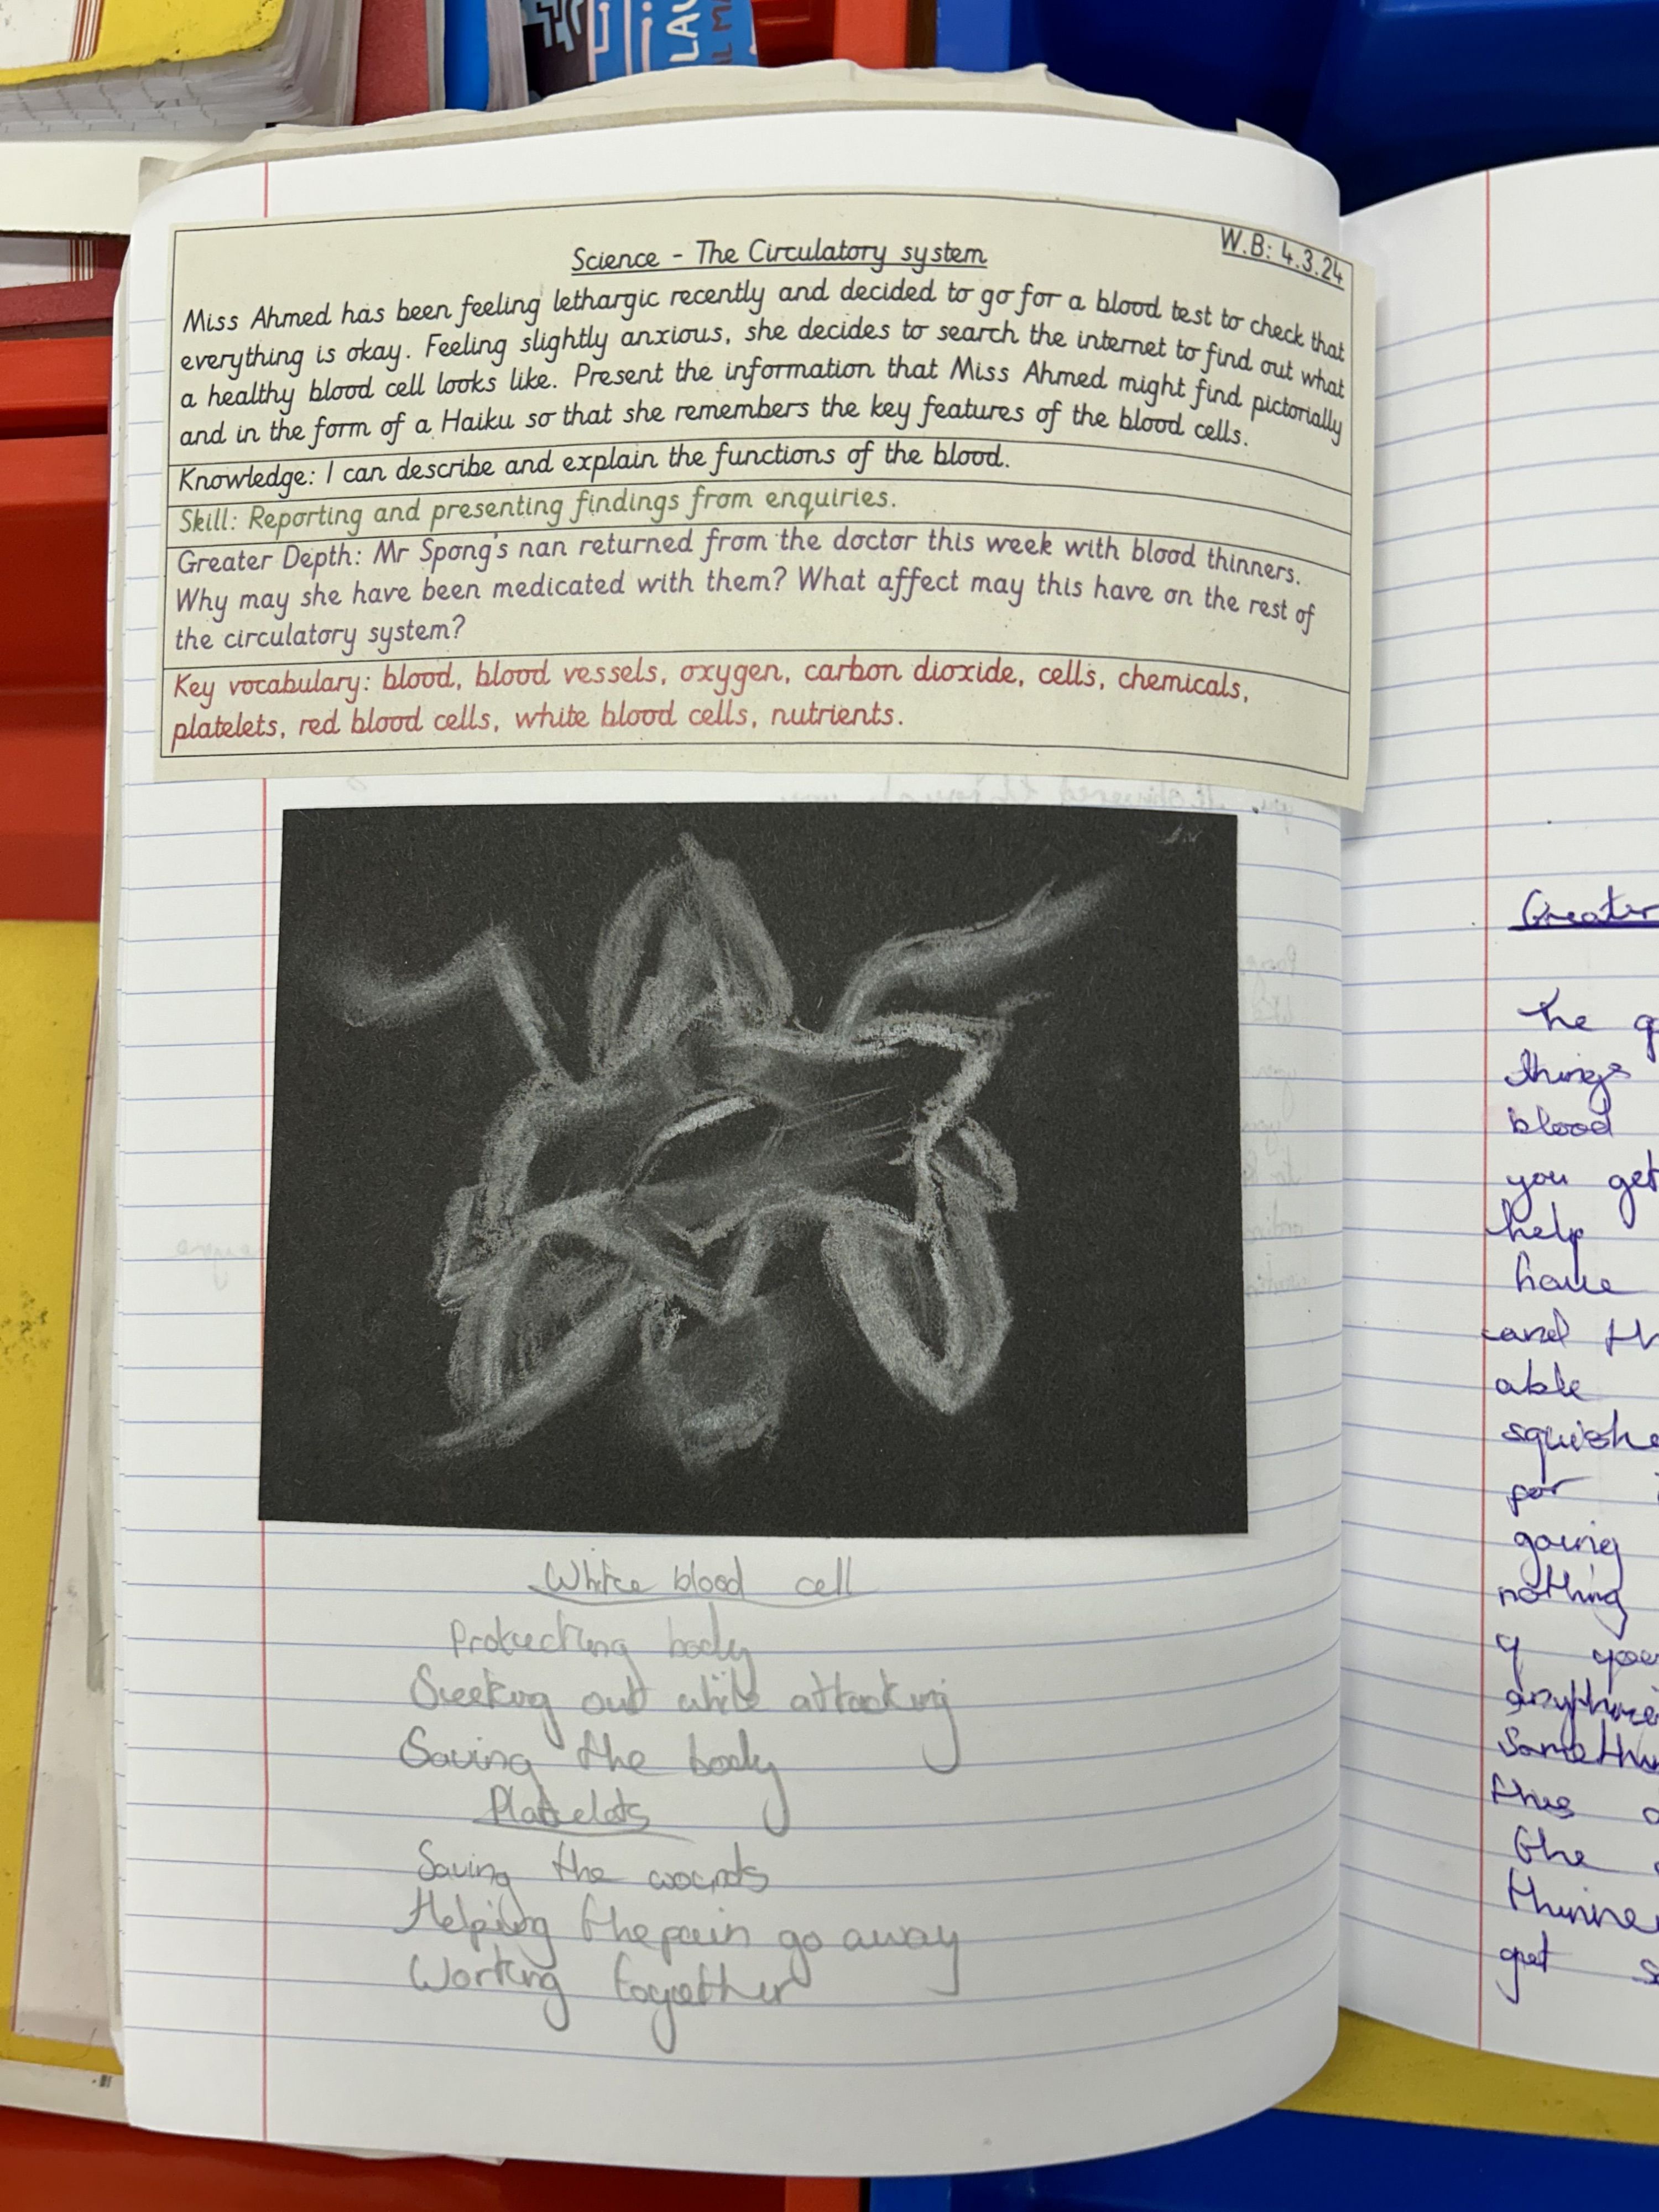 LAU
IL MA
W.B: 4.3.24
Science - The Circulatory system
Miss Ahmed has been feeling lethargic recently and decided to go for a blood test to check that
everything is okay. Feeling slightly anxious, she decides to search the internet to find out what
a healthy blood cell looks like. Present the information that Miss Ahmed might find pictorially
and in the form of a Haiku so that she remembers the key features of the blood cells.
Knowledge: I can describe and explain the functions of the blood.
Skill: Reporting and presenting findings from enquiries.
Greater Depth: Mr Spong's nan returned from the doctor this week with blood thinners.
Why may she have been medicated with them? What affect may this have on the rest of
the circulatory system?
Key vocabulary: blood, blood vessels, oxygen, carbon dioxide, cells, chemicals,
platelets, red blood cells, white blood cells, nutrients.
White blood cell
Protecting body
Seeking out while attacking
Saving the body
Platelets
Saving the
Helping the pain go away
Working together
Greater
The
things
blood
you get
help
have
and th
able
squishe
for
going
nothing
you
anything
Somethin
this
the
thinne
get s